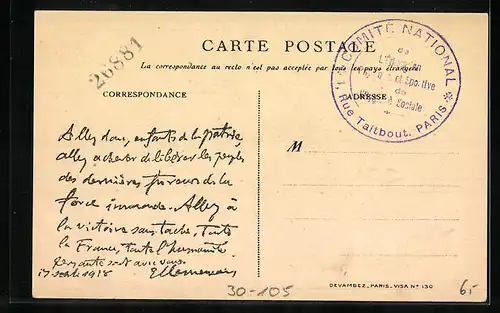 26881
CARTE POSTALE
La correspondance au recto n'est pas acceptée par tous les pays étrangers
COMITÉ NATIONAL
de
et Sportive
de
Sociale
Rue Taitbout. PARIS
CORRESPONDANCE
ADRESSE
M
Allez donc, enfants de la patrie,
allez achever de libérer les peuples
des dernières fureurs de la
force immonde. Allez à
la victoire sans tache, toute
la France, toute l'humanité
pensante sont avec vous.
1918
30-105
DEVAMBEZ, PARIS. VISA Nº 130
6,-